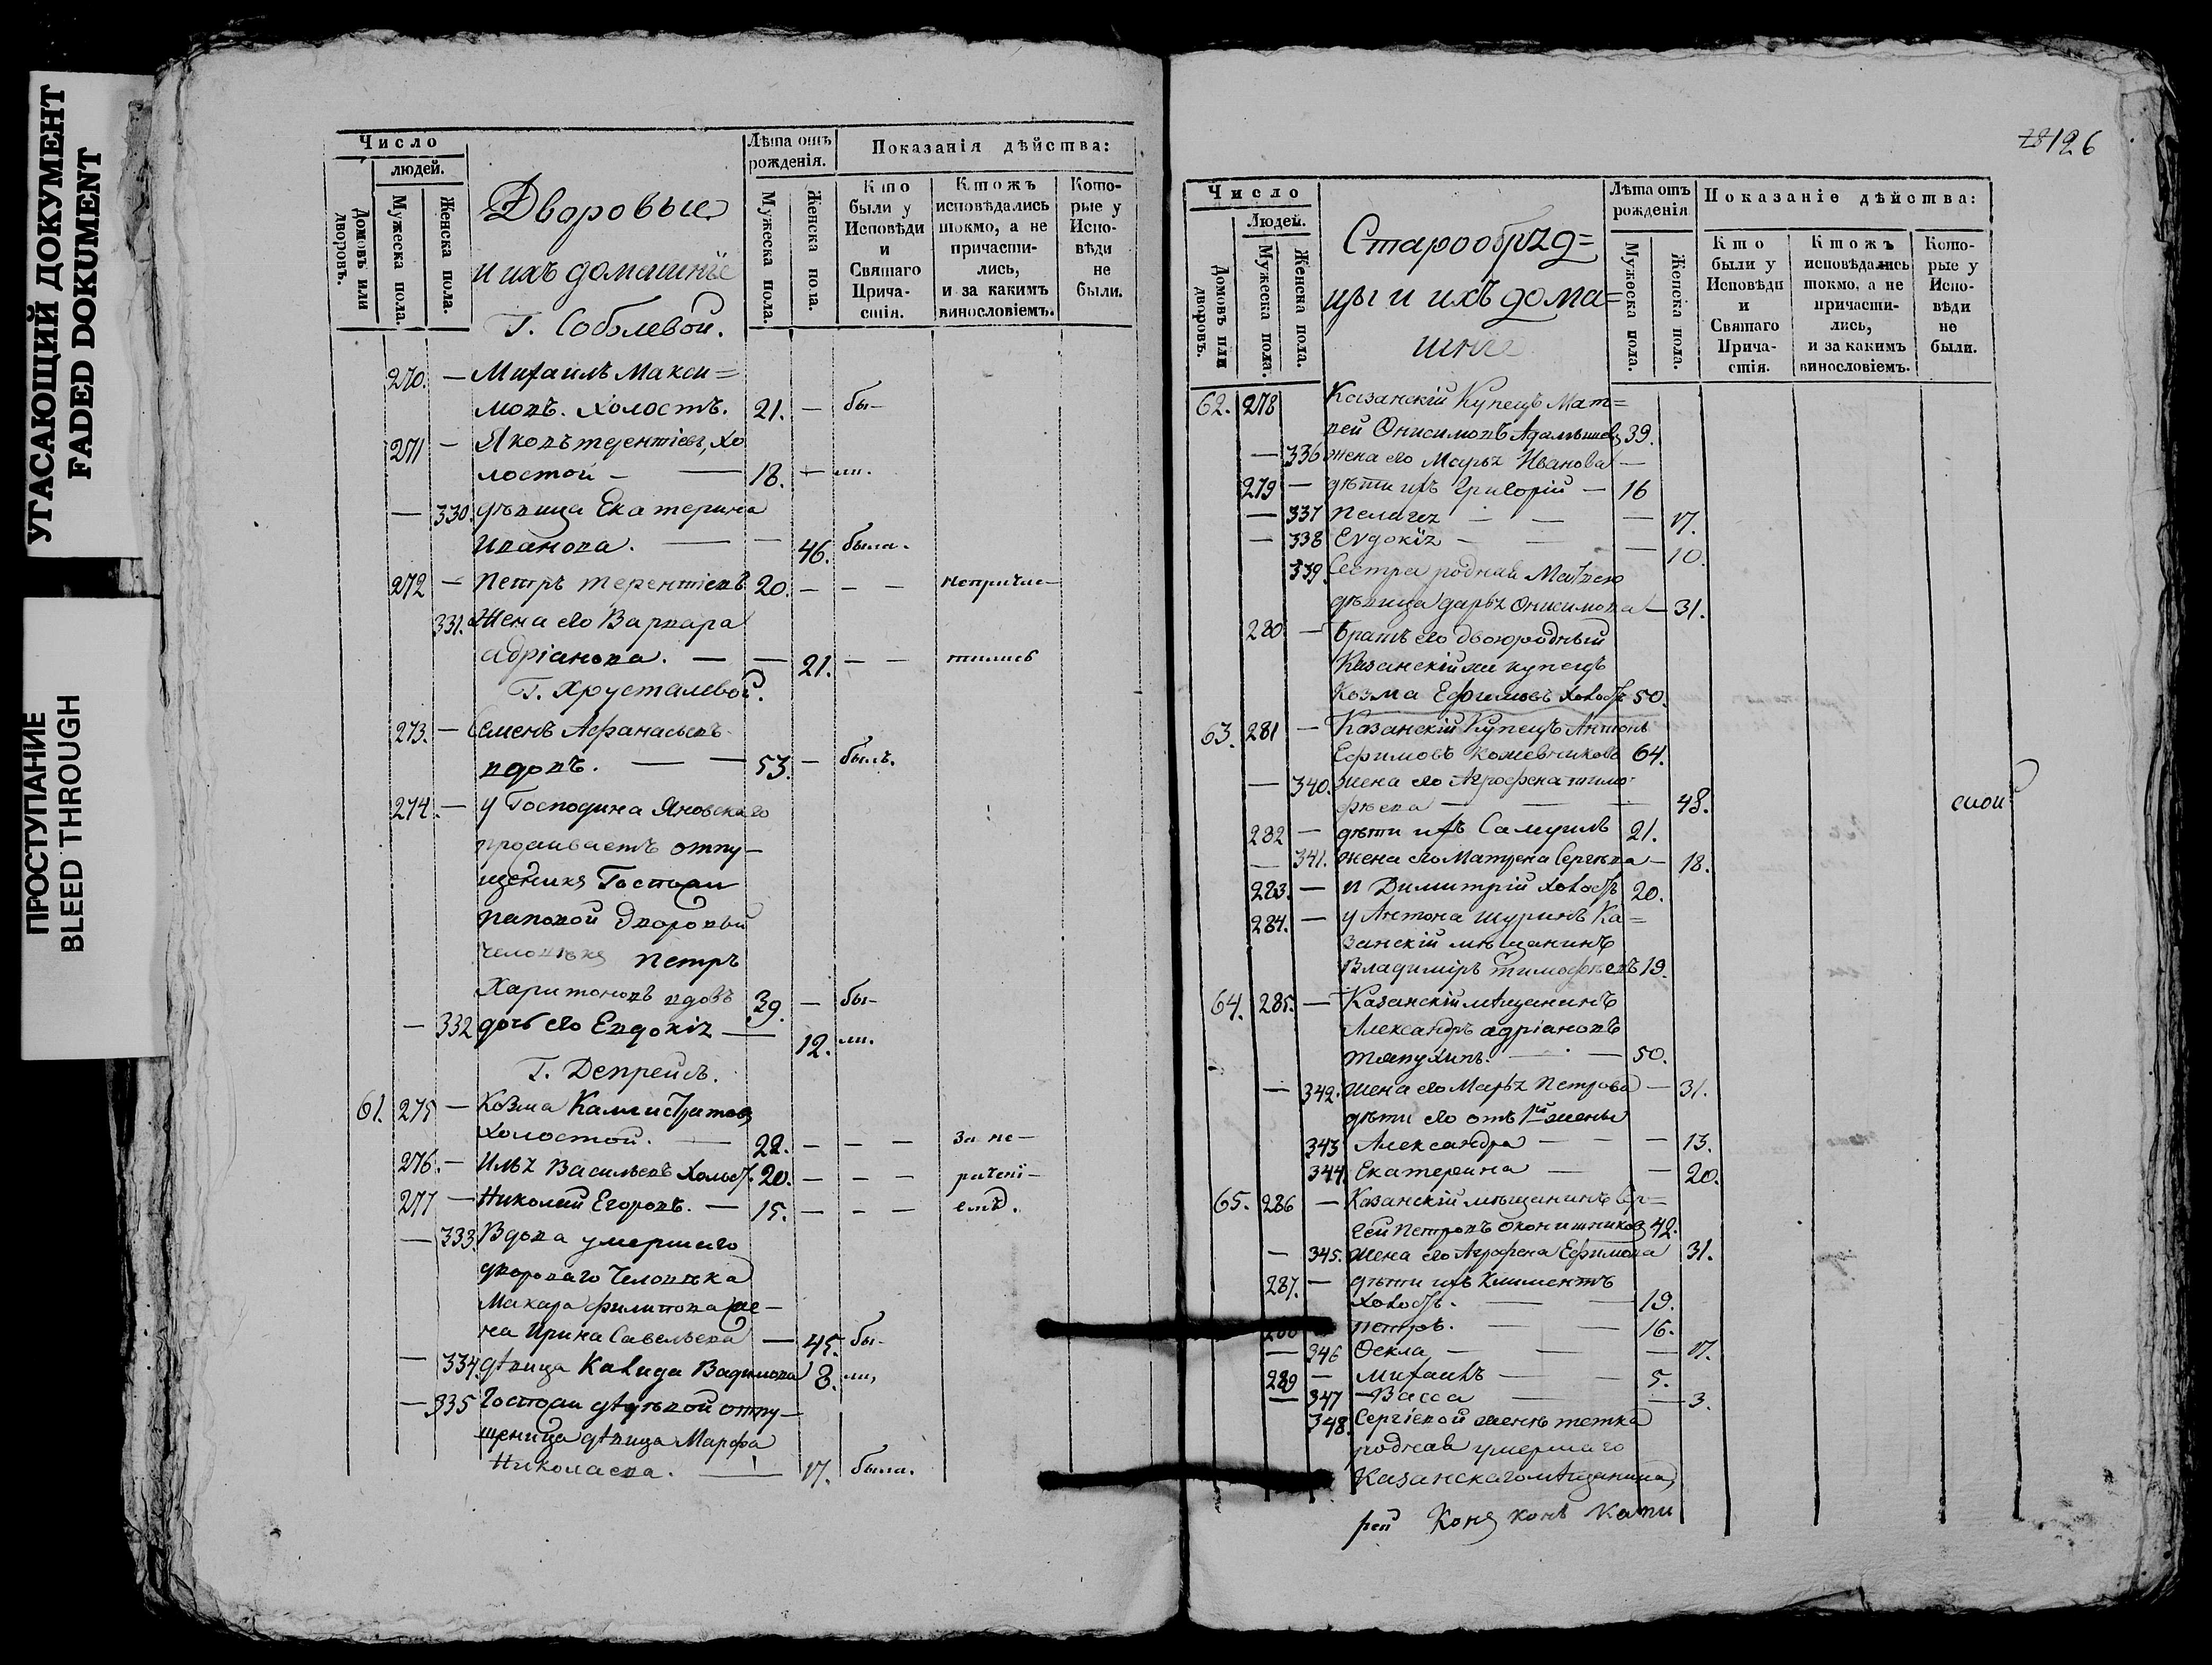 УГАСАЮЩИЙ ДОКУМЕНТ
FADED DOKUMENT
ПРОСТУПАНИЕ
BLEED THROUGH
Число
людей.
Домовъ или дворовъ.
Мужеска пола.
Женска пола.
Дворовые
и ихъ домашніе
Г. Соболевой.
Лѣта отъ рожденія.
Мужеска пола.
Женска пола.
Показанія дѣйства:
Кто были у Исповѣди и Святаго Прича-стія.
Ктожъ исповѣдались токмо, а не причасти-лись, и за какимъ винословіемъ.
Кото-рые у Испо-вѣди не были.
270. — Михаилъ Макси=
мовъ. Холостъ. 21. — бы-
271 — Яковъ терентіевъ, хо
лостой — — 18. — ли.
— 330. дѣвица Екатерина
Иванова. — — 46. была.
272 — Петръ терентіевъ 20. — — — непричас-
331. Жена его Варвара
адріанова. — — 21. — — тились
Г. Хрусталевой.
273. — Семенъ Афанасьевъ
вдовъ. — — 53. — былъ.
274. — у Господина Яновскаго
проживаетъ отпу-
щеникъ Госпожи
Дворовый
человѣкъ Петръ
Харитоновъ вдовъ 39. — бы-
— 332 дочь его Евдокія — 12. ли.
Г. Депрейсъ.
61. 275 — Козма Каллистратовъ
Холостой. — 22. — — — за не-
276. — Илья Васильевъ Холост. 20. — — — рачені-
277 — Николай Егоровъ. — 15. — — — емъ.
— 333. Вдова умершаго
двороваго Человѣка
Макара филипова же-
на Ирина Савельева — 45. бы-
— 334. дѣвица Вадимова 8. ли,
— 335 Госпожи отпу-
щеница дѣвица Марфа
Николаева. — 17. была.
126
Число
Людей.
Домовъ или дворовъ.
Мужеска пола.
Женска пола.
Старообряд=
цы и ихъ дома=
шніе
Лѣта отъ рожденія
Мужеска пола.
Женска пола.
Показаніе дѣйства:
Кто были у Исповѣди и Святаго Прича-стія.
Ктожъ исповѣдались токмо, а не причасти-лись, и за какимъ винословіемъ.
Кото-рые у Испо-вѣди не были.
62. 278 Казанскій Купецъ Мат=
вей Онисимовъ 39.
— 336 жена его Марья Иванова —
279 — дѣти ихъ Григорій — 16
— 337 Пелагея — — — 17.
— 338 Евдокія — — 10.
339. Сестра родная Матвею
дѣвица дарья Онисимова — 31.
280. — братъ его двоюродный
Казанскій же купецъ
Козма Ефимовъ Холостъ 50.
63. 281 — Казанскій Купецъ Антонъ
Ефимовъ Кожевниковъ 64.
— 340. жена его Аграфена тимо-
фѣева — — — 48.
282 — дѣти ихъ Самуилъ 21.
— 341. жена его Матрена Сергѣева — 18.
283. — и Димитрій холостъ 20.
284. — у Антона шуринъ Ка=
занскій мѣщанинъ
Владиміръ тимофѣевъ 19.
64. 285. — Казанскій мѣщанинъ
Александръ адріановъ
50.
— 342. жена его Марья Петрова — 31.
дѣти его отъ 1й жены
343 Александра — — — 13.
344. Екатерина — — 20.
65. 286 — Казанскій мѣщанинъ Сер-
гѣй Петровъ Оконишниковъ 42.
— 345. жена его Аграфена Ефимова 31.
287. — дѣти ихъ Климентъ
Холостъ. — — 19.
Петръ. — — 16.
— 346 Ѳекла — — — 17.
289 — Михаилъ — — 5.
— 347 — Васса — — 3.
348. Сергіевой женѣ тетка
родная умершаго
Казанскаго мѣщанина